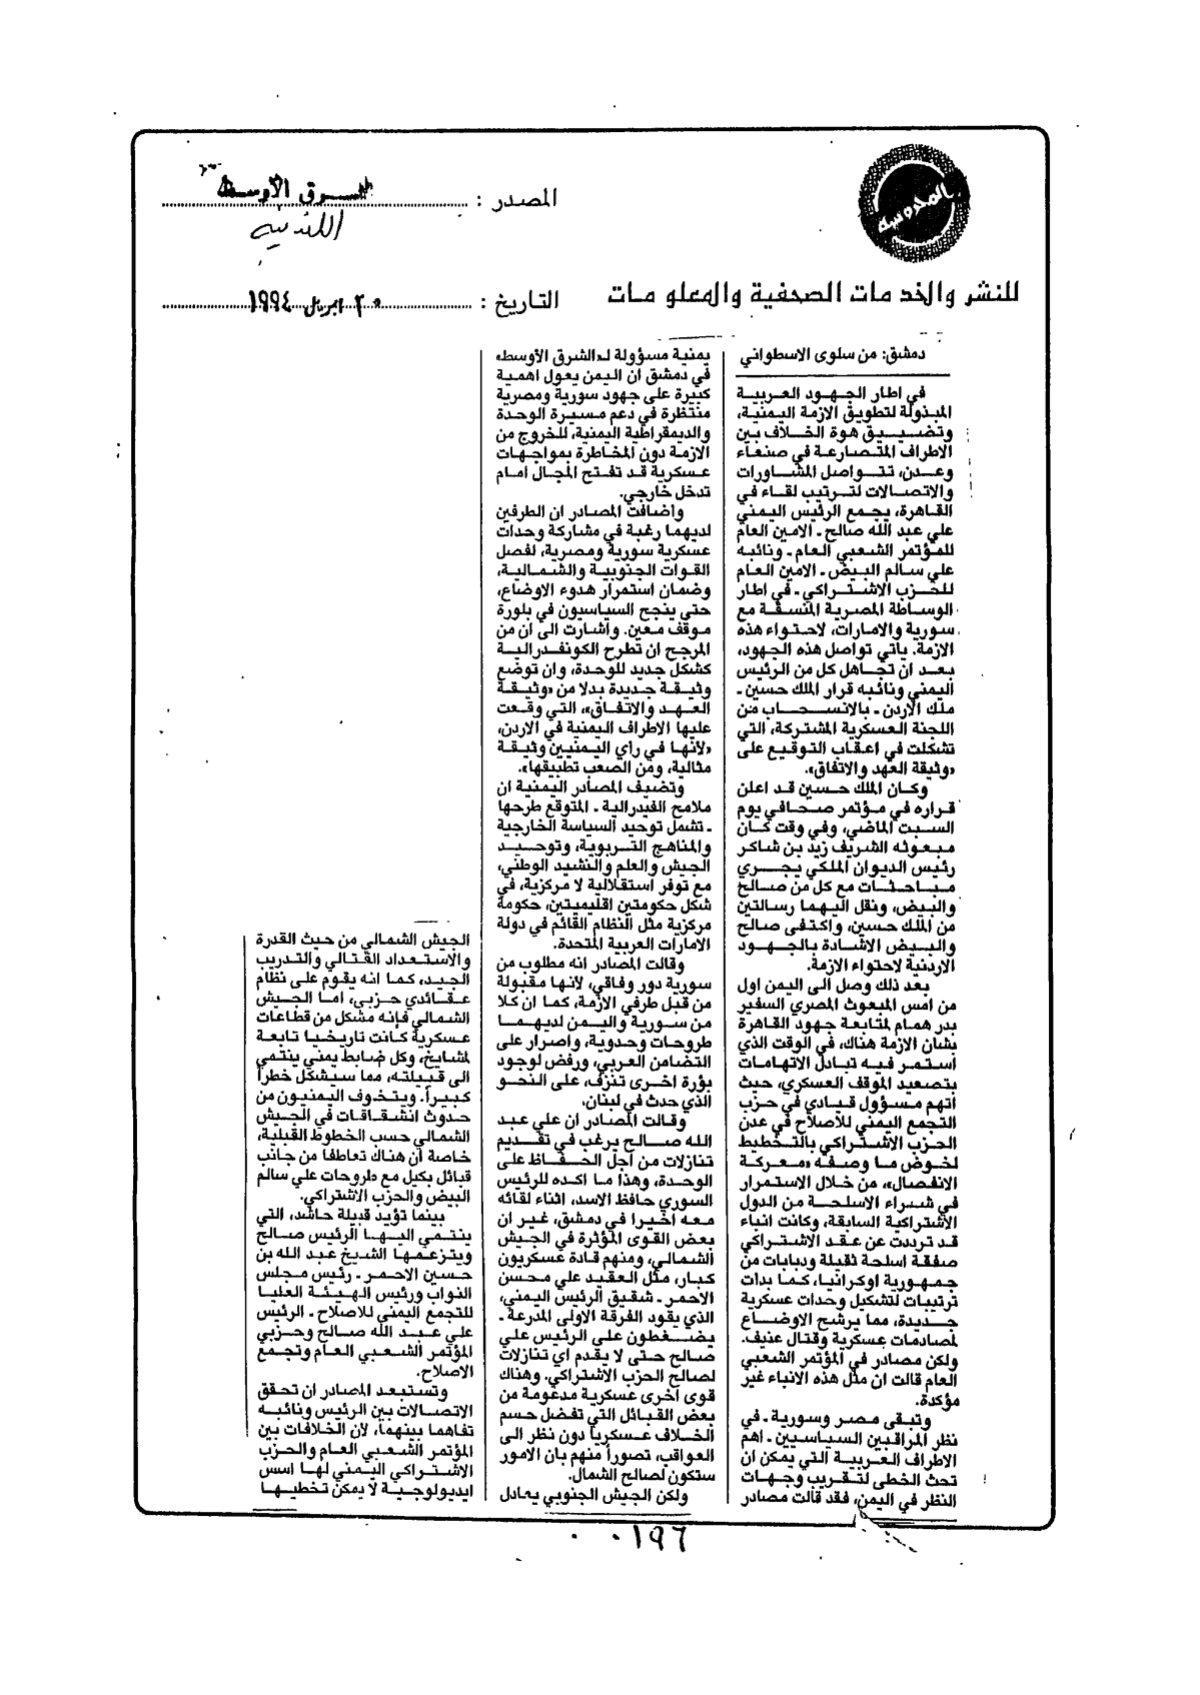 المحروسة
للنشر والخدمات الصحفية والمعلومات
المصدر : الشرق الأوسط
اللندنية
التاريخ : ٢٠ ابريل ١٩٩٤
دمشق: من سلوى الاسطواني
في اطار الجهود العربية
المبذولة لتطويق الازمة اليمنية،
وتضييق هوة الخلاف بين
الاطراف المتصارعة في صنعاء
وعدن، تتواصل المشاورات
والاتصالات لترتيب لقاء في
القاهرة، يجمع الرئيس اليمني
علي عبد الله صالح ـ الامين العام
للمؤتمر الشعبي العام ـ ونائبه
علي سالم البيض ـ الامين العام
للحزب الاشتراكي ـ في اطار
الوساطة المصرية المنسقة مع
سورية والامارات، لاحتواء هذه
الازمة. ياتي تواصل هذه الجهود،
بعد ان تجاهل كل من الرئيس
اليمني ونائبه قرار الملك حسين ـ
ملك الأردن ـ بالانسحاب من
اللجنة العسكرية المشتركة، التي
تشكلت في اعقاب التوقيع على
«وثيقة العهد والاتفاق».
وكان الملك حسين قد اعلن
قراره في مؤتمر صحافي يوم
السبت الماضي، وفي وقت كان
مبعوثه الشريف زيد بن شاكر
رئيس الديوان الملكي يجري
مباحثات مع كل من صالح
والبيض، ونقل اليهما رسالتين
من الملك حسين، واكتفى صالح
والبيض الاشادة بالجهود
الاردنية لاحتواء الازمة.
بعد ذلك وصل الى اليمن اول
من امس المبعوث المصري السفير
بدر همام لمتابعة جهود القاهرة
بشأن الازمة هناك، في الوقت الذي
استمر فيه تبادل الاتهامات
بتصعيد الموقف العسكري، حيث
اتهم مسؤول قيادي في حزب
التجمع اليمني للاصلاح في عدن
الحزب الاشتراكي بالتخطيط
لخوض ما وصفه «معركة
الانفصال»، من خلال الاستمرار
في شراء الاسلحة من الدول
الاشتراكية السابقة، وكانت انباء
قد ترددت عن عقد الاشتراكي
صفقة اسلحة ثقيلة ودبابات من
جمهورية اوكرانيا، كما بدات
ترتيبات لتشكيل وحدات عسكرية
جديدة، مما يرشح الاوضاع
لمصادمات عسكرية وقتال عنيف.
ولكن مصادر في المؤتمر الشعبي
العام قالت ان مثل هذه الانباء غير
مؤكدة.
وتبقى مصر وسورية ـ في
نظر المراقبين السياسيين ـ اهم
الاطراف العربية التي يمكن ان
تحث الخطى لتقريب وجهات
النظر في اليمن، فقد قالت مصادر
يمنية مسؤولة لـ«الشرق الأوسط»
في دمشق ان اليمن يعول اهمية
كبيرة على جهود سورية ومصرية
منتظرة في دعم مسيرة الوحدة
والديمقراطية اليمنية، للخروج من
الازمة دون المخاطرة بمواجهات
عسكرية قد تفتح المجال امام
تدخل خارجي.
واضافت المصادر ان الطرفين
لديهما رغبة في مشاركة وحدات
عسكرية سورية ومصرية، لفصل
القوات الجنوبية والشمالية،
وضمان استمرار هدوء الاوضاع،
حتى ينجح السياسيون في بلورة
موقف معين. واشارت الى ان من
المرجح ان تطرح الكونفدرالية
كشكل جديد للوحدة، وان توضع
وثيقة جديدة بدلا من «وثيقة
العهد والاتفاق»، التي وقعت
عليها الاطراف اليمنية في الاردن،
«لأنها في رأي اليمنيين وثيقة
مثالية، ومن الصعب تطبيقها».
وتضيف المصادر اليمنية ان
ملامح الفيدرالية ـ المتوقع طرحها
ـ تشمل توحيد السياسة الخارجية
والمناهج التربوية، وتوحيد
الجيش والعلم والنشيد الوطني،
مع توفر استقلالية لا مركزية، في
شكل حكومتين اقليميتين، حكومة
مركزية مثل النظام القائم في دولة
الامارات العربية المتحدة.
وقالت المصادر انه مطلوب من
سورية دور وفاقي، لأنها مقبولة
من قبل طرفي الأزمة، كما ان كلا
من سورية واليمن لديهما
طروحات وحدوية، واصرار على
التضامن العربي، ورفض لوجود
بؤرة اخرى تنزف، على النحو
الذي حدث في لبنان.
وقالت المصادر ان علي عبد
الله صالح يرغب في تقديم
تنازلات من أجل الحفاظ على
الوحدة، وهذا ما اكده للرئيس
السوري حافظ الاسد، اثناء لقائه
معه اخيرا في دمشق، غير ان
بعض القوى المؤثرة في الجيش
الشمالي، ومنهم قادة عسكريون
كبار، مثل العقيد علي محسن
الاحمر ـ شقيق الرئيس اليمني،
الذي يقود الفرقة الاولى المدرعة ـ
يضغطون على الرئيس علي
صالح حتى لا يقدم اي تنازلات
لصالح الحزب الاشتراكي. وهناك
قوى اخرى عسكرية مدعومة من
بعض القبائل التي تفضل حسم
الخلاف عسكريا دون نظر الى
العواقب، تصوراً منهم بان الامور
ستكون لصالح الشمال.
ولكن الجيش الجنوبي يعادل
الجيش الشمالي من حيث القدرة
والاستعداد القتالي والتدريب
الجيد، كما انه يقوم على نظام
عقائدي حزبي، اما الجيش
الشمالي فإنه مشكل من قطاعات
عسكرية كانت تاريخيا تابعة
لمشايخ، وكل ضابط يمني ينتمي
الى قبيلته، مما سيشكل خطراً
كبيراً. ويتخوف اليمنيون من
حدوث انشقاقات في الجيش
الشمالي حسب الخطوط القبلية،
خاصة ان هناك تعاطفا من جانب
قبائل بكيل مع طروحات علي سالم
البيض والحزب الاشتراكي.
بينما تؤيد قبيلة حاشد، التي
ينتمي اليها الرئيس صالح
ويتزعمها الشيخ عبد الله بن
حسين الاحمر ـ رئيس مجلس
النواب ورئيس الهيئة العليا
للتجمع اليمني للاصلاح ـ الرئيس
علي عبد الله صالح وحزبي
المؤتمر الشعبي العام وتجمع
الاصلاح.
وتستبعد المصادر ان تحقق
الاتصالات بين الرئيس ونائبه
تفاهما بينهما، لأن الخلافات بين
المؤتمر الشعبي العام والحزب
الاشتراكي اليمني لها اسس
ايديولوجية لا يمكن تخطيها
٠٠١٩٦